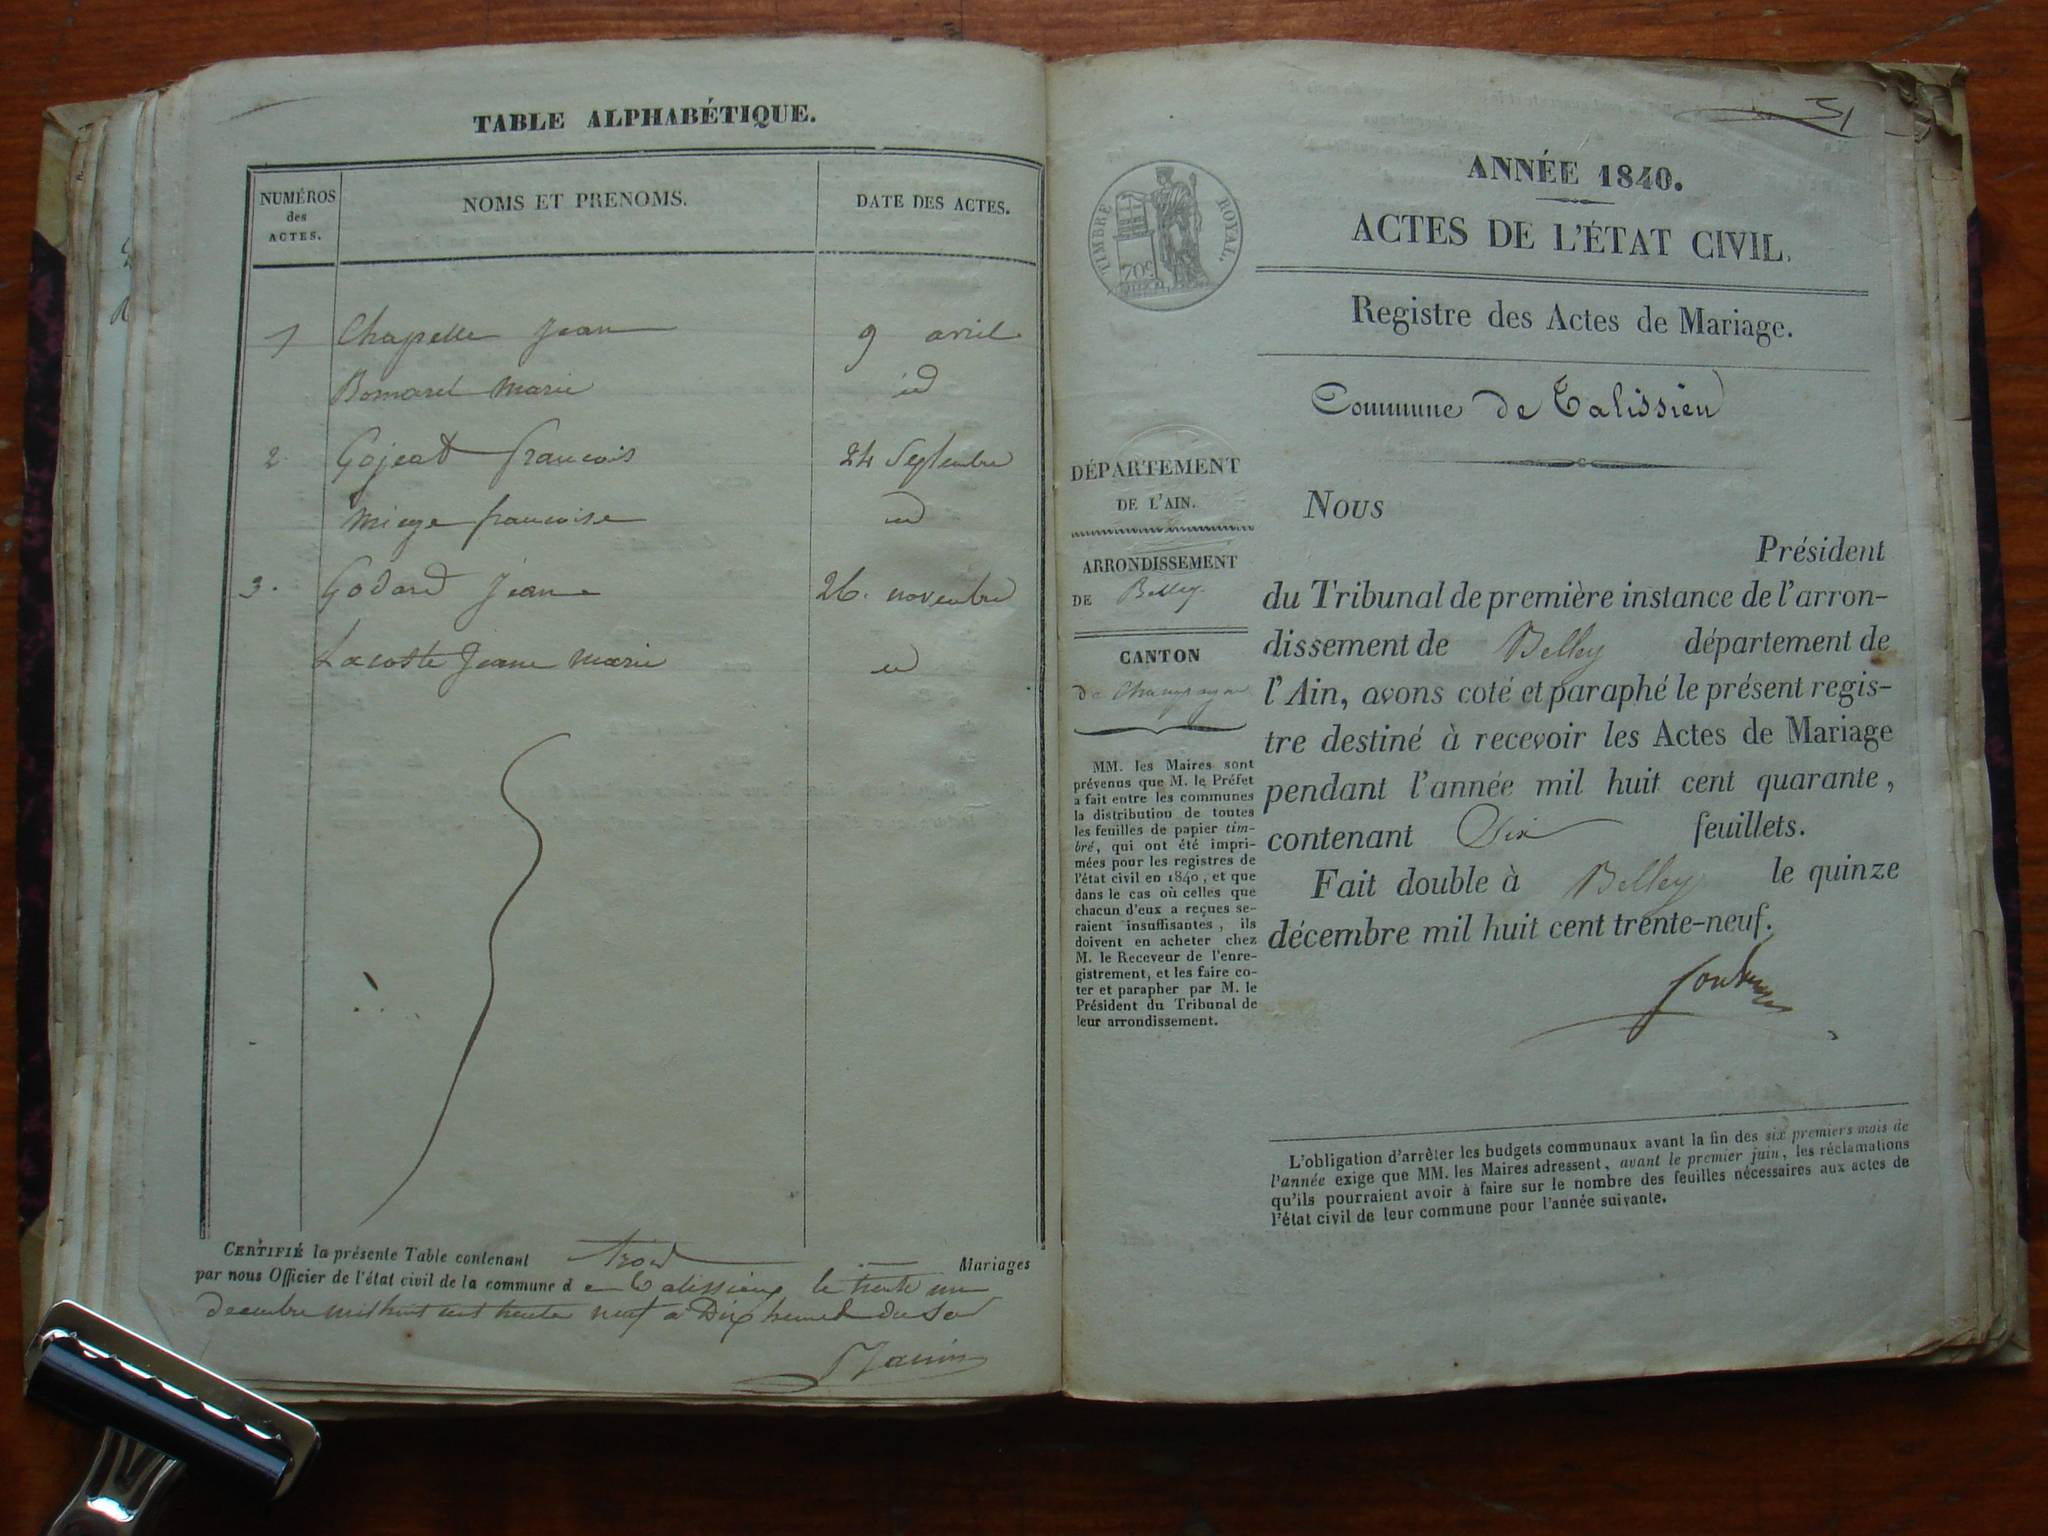 TABLE ALPHABÉTIQUE.
NUMÉROS des ACTES.
NOMS ET PRENOMS.
DATE DES ACTES.
1 Chapelle Jean 9 avril
Bomarel Marie id
2 Gojeat francois 24 Septembre
Miege francoise id
3. Godard Jean 26. novembre
Lacoste Jeanne Marie id
CERTIFIÉ la présente Table contenant trois Mariages
par nous Officier de l'état civil de la commune d e Talissieu le trente un
decembre mil huit cent trente neuf a Dix heures du Soir
31
ANNÉE 1840.
ACTES DE L'ÉTAT CIVIL.
Registre des Actes de Mariage.
Commune de Talissieu
TIMBRE ROYAL.
70c
DÉPARTEMENT
DE L'AIN.
ARRONDISSEMENT
DE Belley.
CANTON
de Champagne
MM. les Maires sont
prévenus que M. le Préfet
a fait entre les communes
la distribution de toutes
les feuilles de papier tim-
bré, qui ont été impri-
mées pour les registres de
l'état civil en 1840, et que
dans le cas où celles que
chacun d'eux a reçues se-
raient insuffisantes, ils
doivent en acheter chez
M. le Receveur de l'enre-
gistrement, et les faire co-
ter et parapher par M. le
Président du Tribunal de
leur arrondissement.
Nous
Président
du Tribunal de première instance de l'arron-
dissement de Belley département de
l'Ain, avons coté et paraphé le présent regis-
tre destiné à recevoir les Actes de Mariage
pendant l'année mil huit cent quarante,
contenant Six feuillets.
Fait double à Belley le quinze
décembre mil huit cent trente-neuf.
L'obligation d'arrêter les budgets communaux avant la fin des six premiers mois de
l'année exige que MM. les Maires adressent, avant le premier juin, les réclamations
qu'ils pourraient avoir à faire sur le nombre des feuilles nécessaires aux actes de
l'état civil de leur commune pour l'année suivante.